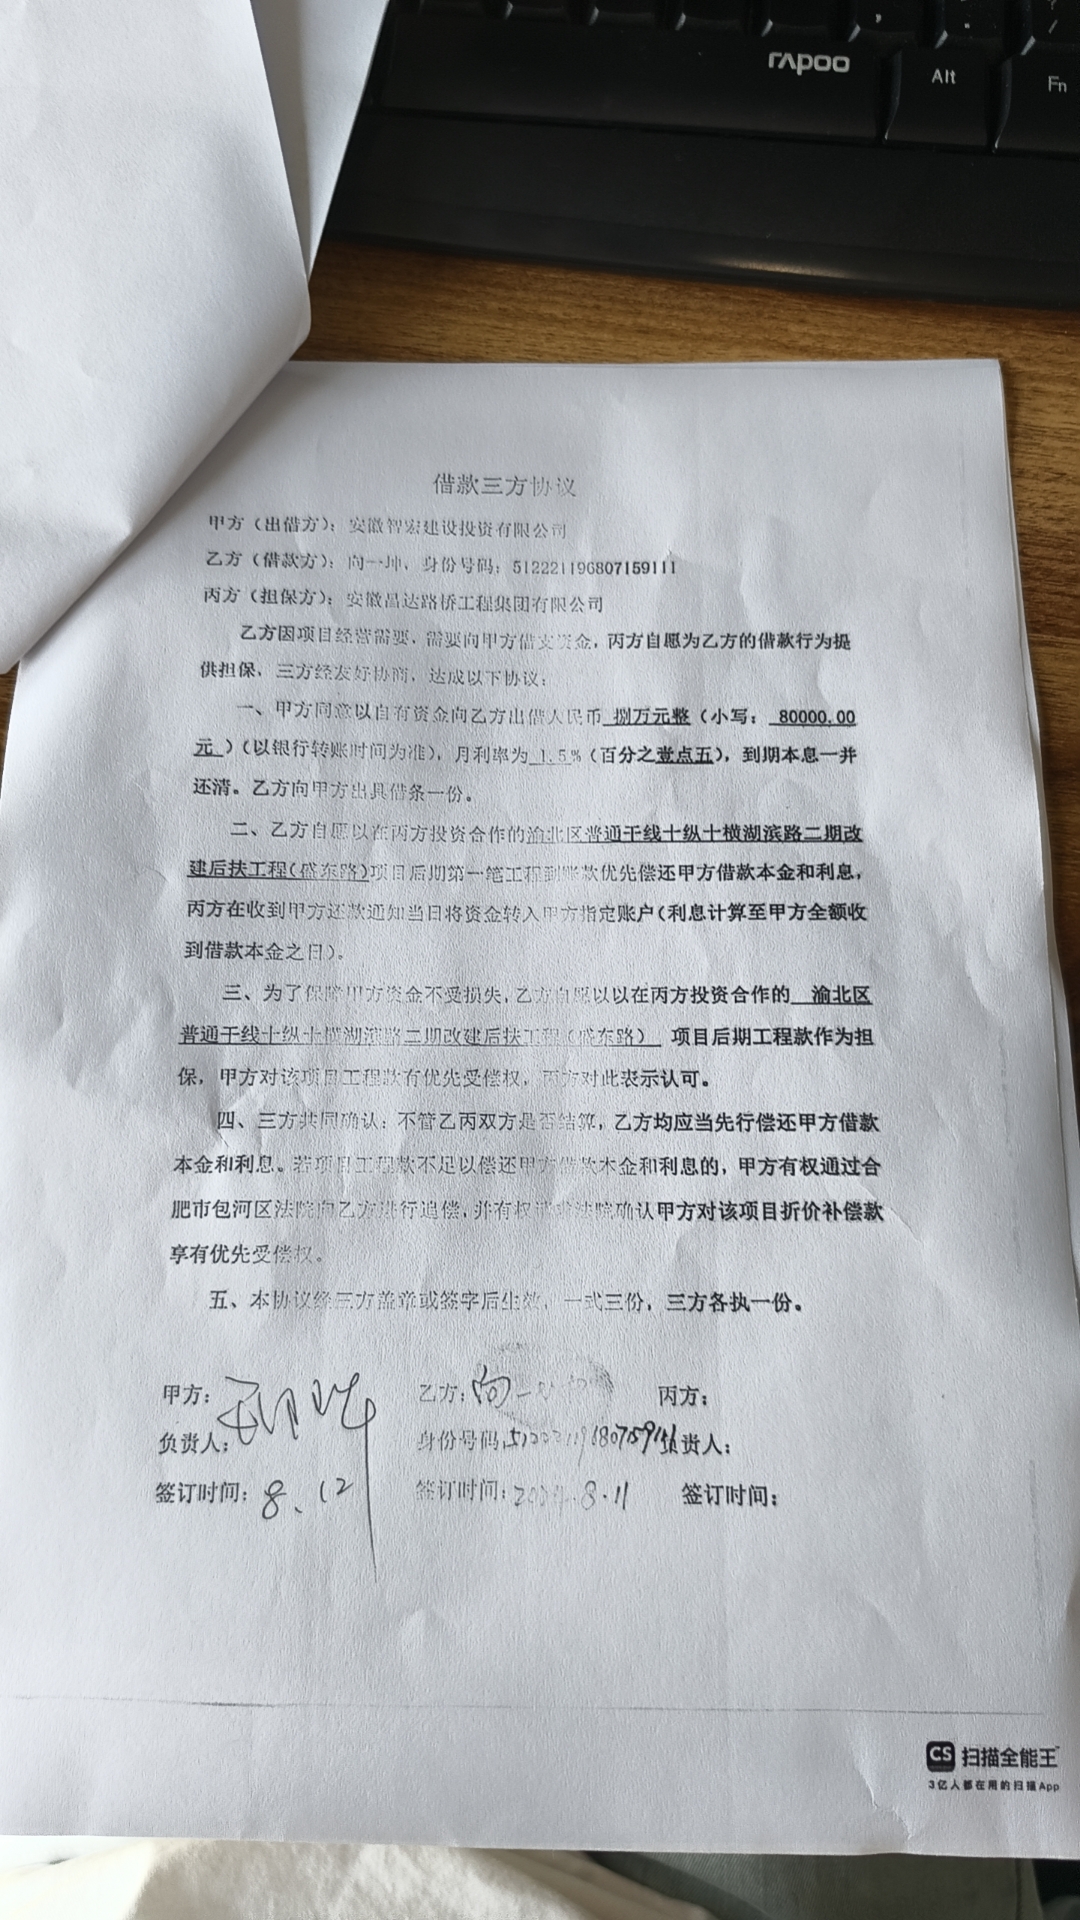 rapoo
Alt
Fn
借款三方协议
甲方（出借方）：安徽智宏建设投资有限公司
乙方（借款方）：向一坤，身份号码：512221196807159111
丙方（担保方）：安徽昌达路桥工程集团有限公司
乙方因项目经营需要，需要向甲方借支资金，丙方自愿为乙方的借款行为提
供担保，三方经友好协商，达成以下协议：
一、甲方同意以自有资金向乙方出借人民币 捌万元整（小写： 80000.00
元 ）（以银行转账时间为准），月利率为 1.5%（百分之壹点五），到期本息一并
还清。乙方向甲方出具借条一份。
二、乙方自愿以在丙方投资合作的渝北区普通干线十纵十横湖滨路二期改
建后扶工程（盛东路）项目后期第一笔工程到账款优先偿还甲方借款本金和利息，
丙方在收到甲方还款通知当日将资金转入甲方指定账户（利息计算至甲方全额收
到借款本金之日）。
三、为了保障甲方资金不受损失，乙方自愿以以在丙方投资合作的 渝北区
普通干线十纵十横湖滨路二期改建后扶工程（盛东路） 项目后期工程款作为担
保，甲方对该项目工程款有优先受偿权，丙方对此表示认可。
四、三方共同确认：不管乙丙双方是否结算，乙方均应当先行偿还甲方借款
本金和利息。若项目工程款不足以偿还甲方借款本金和利息的，甲方有权通过合
肥市包河区法院向乙方进行追偿，并有权请求法院确认甲方对该项目折价补偿款
享有优先受偿权。
五、本协议经三方盖章或签字后生效，一式三份，三方各执一份。
甲方： 乙方：向一坤 丙方：
负责人： 身份号码： 负责人：
签订时间：8.12 签订时间：2024.8.11 签订时间：
CS 扫描全能王
3亿人都在用的扫描App